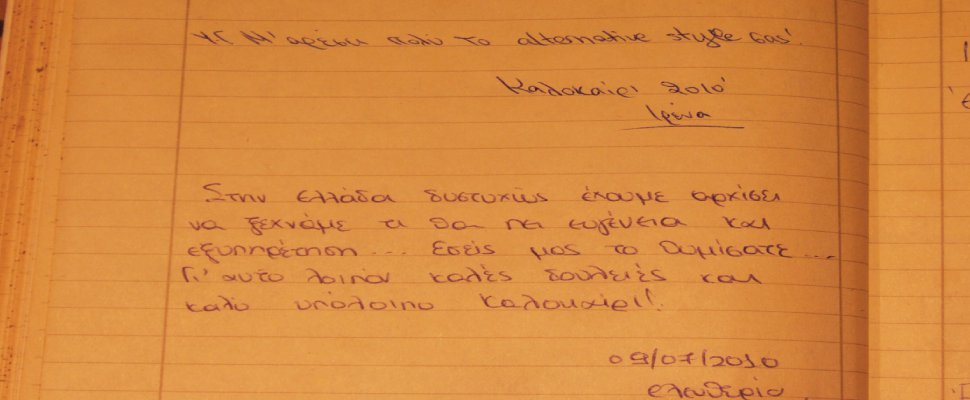 ΥΓ Μ' αρέσει πολύ το alternative style σας!
Καλοκαίρι 2010
Ιρένα
Στην Ελλάδα δυστυχώς έχουμε αρχίσει
να ξεχνάμε τι θα πει ευγένεια και
εξυπηρέτηση... Εσείς μας το θυμίσατε...
Γι' αυτό λοιπόν καλές δουλειές και
καλό υπόλοιπο καλοκαίρι!
09/07/2010
Ελευθερία